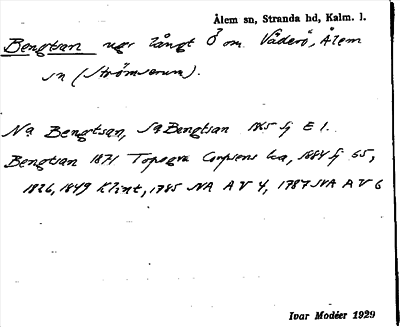 Ålem sn, Stranda hd, Kalm. l.
Bengtsan ngr långt Ö om Våderö, Ålem
sn (Strömserum).
Na Bengtsan, Sa Bengtsan 1865 fj E 1.
Bengtsan 1871 Topogra Corpsens ka, 1684 fj 65,
1826, 1849 Klint, 1785 NA A V 4, 1787 NA A V 6
Ivar Modéer 1929